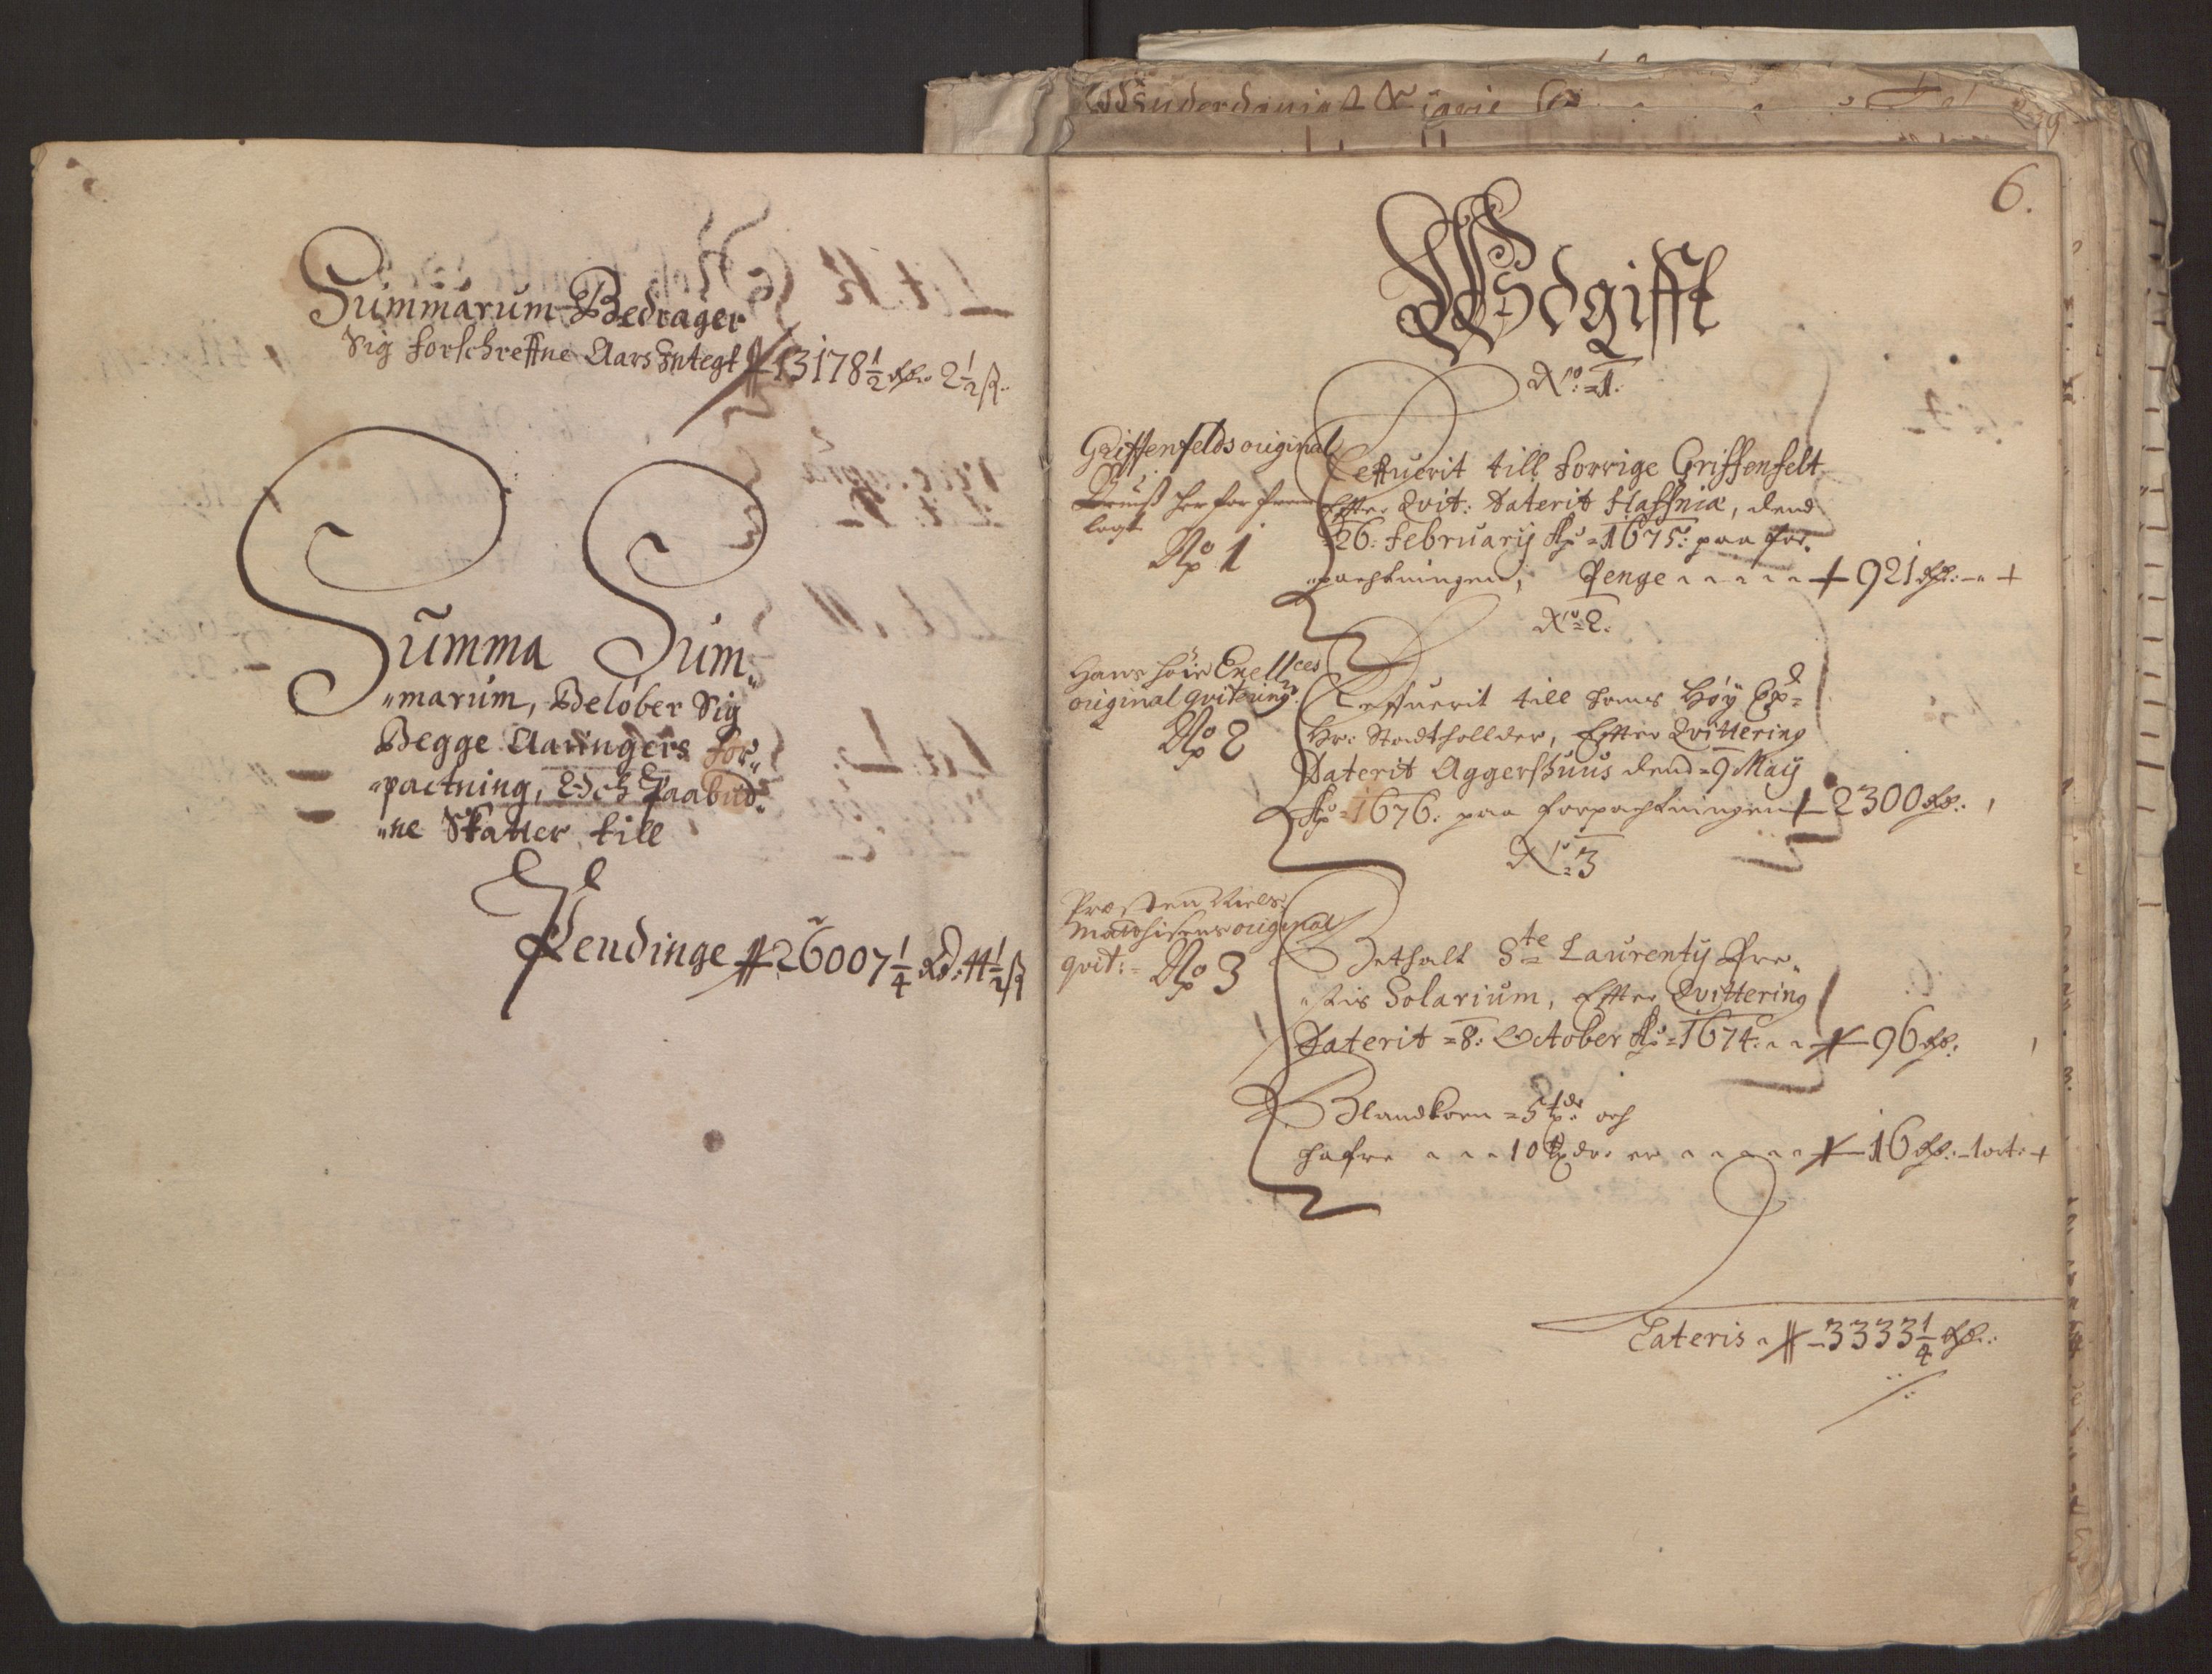 Summarum Bedrager
Sig forschreffne Aars Integt 13178 1/2 Rd: 2 1/2 ß:
Summa Sum„
„marum, Beløber Sig
Begge Aaringers for„
„pactning, Och Paabud„
„ne Skatter till
Pendinge 26007 1/4 Rd: 4 1/2 ß
6.
Wdgifft
No: 1.
Griffenfelds original
her for frem
lagt
No 1
Leffuerit till forrige Griffenfelt
Effter Qvit: Daterit Haffnia, dend
26: February Ao 1675: paa for„
„pachtningen, Penge 921 Rd:
No 2.
Hans höie Exellces
original qvitering
No 2
Leffuerit till hans Höy Exp=
Hr: Stadthollder, Effter Qvittering
Daterit Aggershuus dend 9 Maij
Ao 1676: paa forpachtningen 2300 Rd:
No 3
Præsten Niels
Matthisens original
qvit:
No 3
Bethalt Ste Laurentij Pre„
„stis Solarium, Effter Qvittering
Daterit 8: October Ao 1674: 96 Rd:
Blandkorn 5 tdr och
hafre 10 tdr er 16 Rd: 1 ort:
Lateris 3333 1/4 Rd: